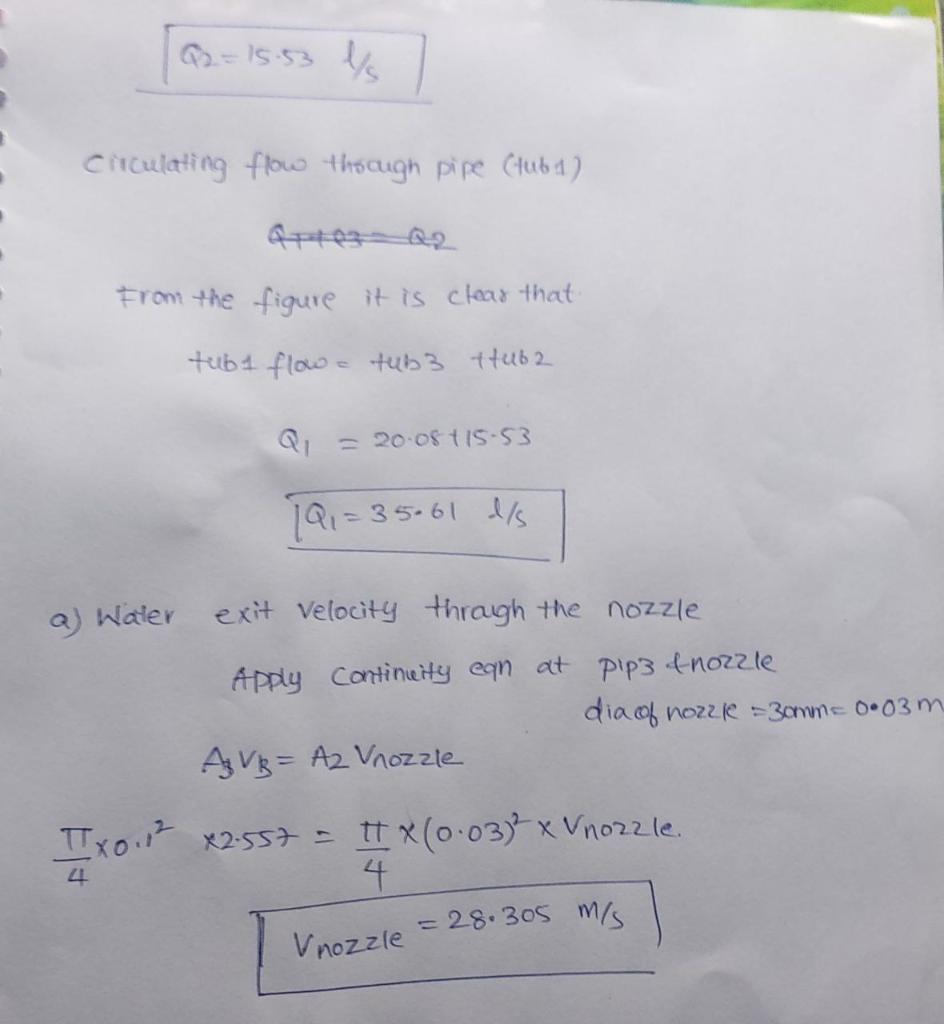 Q2 = 15.53 l/s
Circulating flow through pipe (tub1)
Q1+Q3 = Q2
From the figure it is clear that
tub1 flow = tub3 + tub2
Q1 = 20.08+15.53
Q1 = 35.61 l/s
a) Water exit velocity through the nozzle
Apply Continuity eqn at pip3 & nozzle
dia of nozzle = 30mm = 0.03 m
A3 V3 = A2 Vnozzle
π/4 × 0.1² × 2.557 = π/4 × (0.03)² × Vnozzle.
Vnozzle = 28.305 m/s